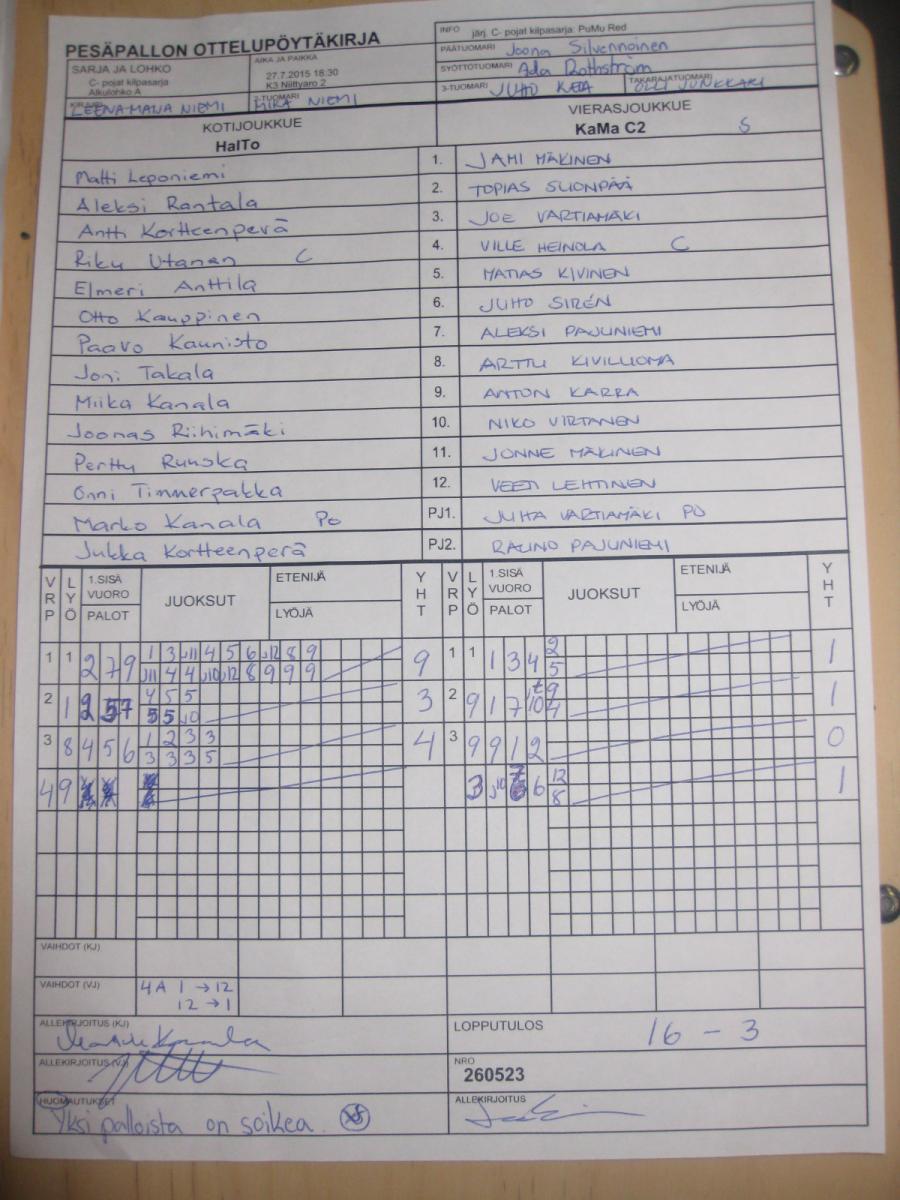 PESÄPALLON OTTELUPÖYTÄKIRJA
INFO järj. C- pojat kilpasarja: PuMu Red
PÄÄTUOMARI Joona Silvennoinen
SYÖTTÖTUOMARI Ada Rothström
3-TUOMARI JUHO KETA TAKARAJATUOMARI OLLI JUNKKARI
SARJA JA LOHKO
C- pojat kilpasarja
Alkulohko A
AIKA JA PAIKKA
27.7.2015 18:30
K3 Niittyaro 2
KIRJURI LEENA-MAIJA NIEMI 2-TUOMARI MIRA NIEMI
KOTIJOUKKUE VIERASJOUKKUE
HalTo KaMa C2 S
Matti Leponiemi 1. JAMI MÄKINEN
Aleksi Rantala 2. TOPIAS SUONPÄÄ
Antti Kortteenperä 3. JOE VARTIAMÄKI
Riku Utanen C 4. VILLE HEINOLA C
Elmeri Anttila 5. MATIAS KIVINEN
Otto Kauppinen 6. JUHO SIRÉN
Paavo Kaunisto 7. ALEKSI PAJUNIEMI
Joni Takala 8. ARTTU KIVILUOMA
Miika Kanala 9. ANTON KARRA
Joonas Riihimäki 10. NIKO VIRTANEN
Perttu Ruuska 11. JONNE MÄKINEN
Onni Timmerpakka 12. VEETI LEHTINEN
Marko Kanala PO PJ1. JUHA VARTIAMÄKI PO
Jukka Kortteenperä PJ2. RAUNO PAJUNIEMI
VRP LYÖ 1.SISÄ VUORO PALOT JUOKSUT ETENIJÄ LYÖJÄ YHT VRP LYÖ 1.SISÄ VUORO PALOT JUOKSUT ETENIJÄ LYÖJÄ YHT
1 1 2 7 9 1 3 J11 4 5 6 J12 8 9 9 1 1 1 3 4 2 1
J11 4 4 J10 J12 8 9 9 9 5
2 1 2 5 7 4 5 5 3 2 9 1 7 10 9 1
5 5 J0 4
3 8 4 5 6 1 2 3 3 4 3 9 9 1 2 0
3 3 3 5
4 9 3 J10 6 12 1
8
VAIHDOT (KJ)
VAIHDOT (VJ) 4A 1 → 12
12 → 1
ALLEKIRJOITUS (KJ) LOPPUTULOS 16 - 3
ALLEKIRJOITUS (VJ) NRO
260523
HUOMAUTUKSET ALLEKIRJOITUS
Yksi palloista on soikea.